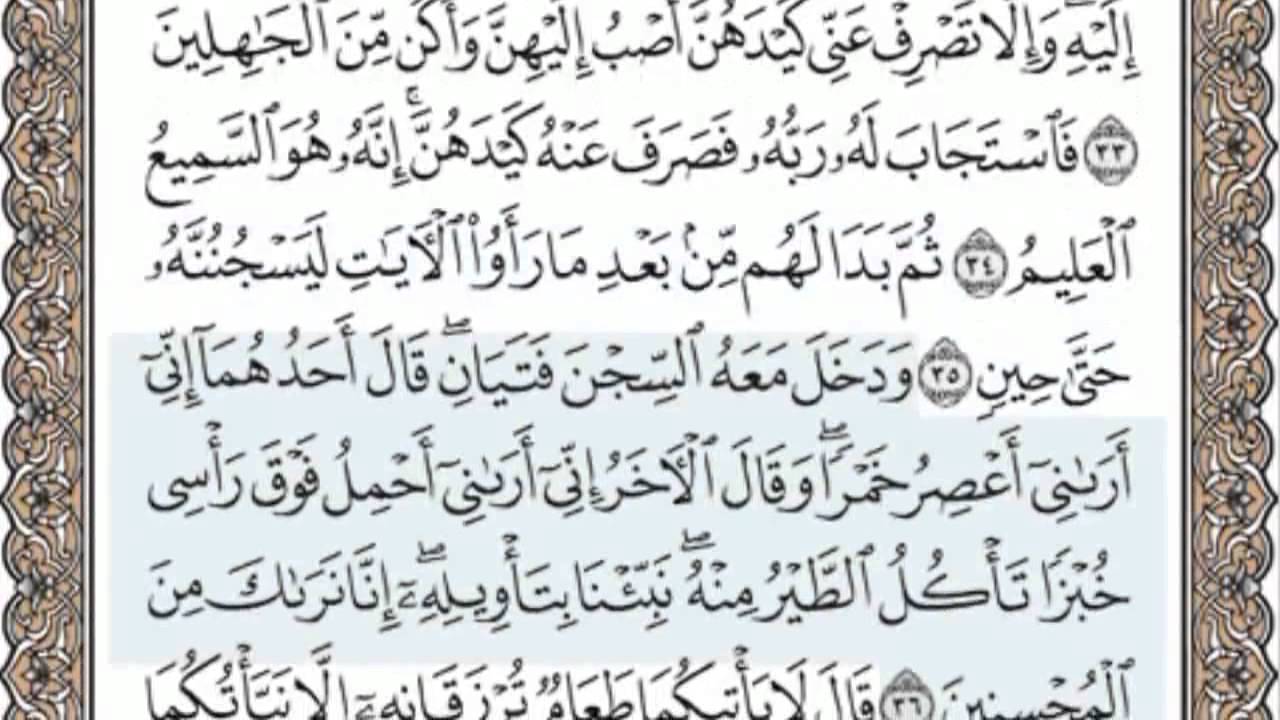 إِلَيْهِ ۖ وَإِلَّا تَصْرِفْ عَنِّي كَيْدَهُنَّ أَصْبُ إِلَيْهِنَّ وَأَكُن مِّنَ ٱلْجَٰهِلِينَ
٣٣ فَٱسْتَجَابَ لَهُۥ رَبُّهُۥ فَصَرَفَ عَنْهُ كَيْدَهُنَّ ۚ إِنَّهُۥ هُوَ ٱلسَّمِيعُ
ٱلْعَلِيمُ ٣٤ ثُمَّ بَدَا لَهُم مِّنۢ بَعْدِ مَا رَأَوُا۟ ٱلْءَايَٰتِ لَيَسْجُنُنَّهُۥ
حَتَّىٰ حِينٍ ٣٥ وَدَخَلَ مَعَهُ ٱلسِّجْنَ فَتَيَانِ ۖ قَالَ أَحَدُهُمَآ إِنِّىٓ
أَرَىٰنِىٓ أَعْصِرُ خَمْرًا ۖ وَقَالَ ٱلْءَاخَرُ إِنِّىٓ أَرَىٰنِىٓ أَحْمِلُ فَوْقَ رَأْسِى
خُبْزًا تَأْكُلُ ٱلطَّيْرُ مِنْهُ ۖ نَبِّئْنَا بِتَأْوِيلِهِۦٓ ۖ إِنَّا نَرَىٰكَ مِنَ
ٱلْمُحْسِنِينَ ٣٦ قَالَ لَا يَأْتِيكُمَا طَعَامٌ تُرْزَقَانِهِۦٓ إِلَّا نَبَّأْتُكُمَا